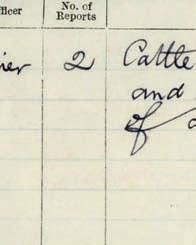 fficer No. of
Reports
ier 2 Cattle
and
of